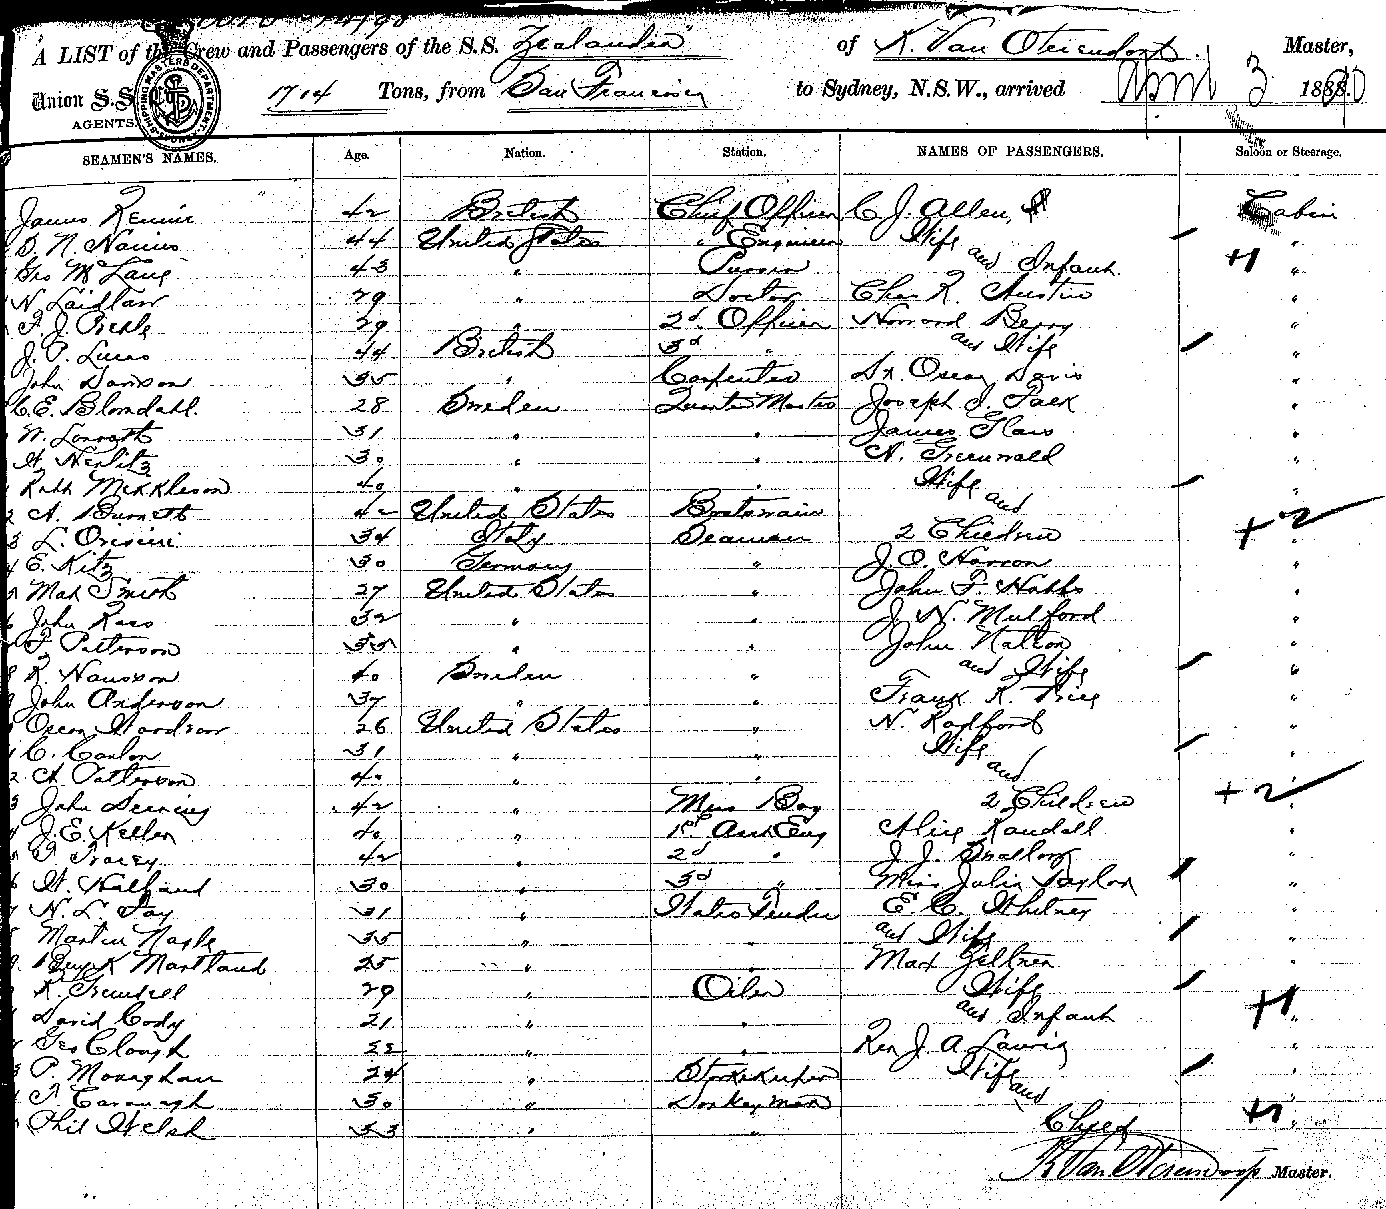 A LIST of the Crew and Passengers of the S.S. Zealandia of K. Van Oterendorp Master,
Union S.S. 1714 Tons, from San Francisco to Sydney, N.S.W., arrived April 3 1890
AGENTS.
SEAMEN'S NAMES. Age. Nation. Station. NAMES OF PASSENGERS. Saloon or Steerage.
James Rennie 42 British Chief Officer C J. Allen, Cabin
D. N. 44 United States " Engineer Wife "
Geo McLane 43 " Purser and Infant +1 "
N. Laidlaw 29 " Doctor Chas R. Austin "
F. J. 29 " 2d Officer Howard Berry "
J. P. Lucas 44 British 3d " and Wife "
John Dawson 35 " Carpenter Dr. Oscar Davis "
C. E. Blomdahl. 28 Sweden Quarter Master Joseph J. Falk "
W. 31 " " James "
H. 30 " " A. Grunwald "
Mikkleson 40 " " Wife "
A. Burnett 42 United States Boatswain and
L. 34 Italy Seaman 2 Children +2 "
E. Kitz 30 Germany " J. O. Harron "
Max Smith 27 United States " John F. Hobbs "
John Ross 32 " " J. N. Mulford "
F. Patterson 35 " " John "
R. Hansson 40 Sweden " and Wife "
John Anderson 37 " " Frank K. "
Oscar 26 United States " N. Radford "
C. Conlon 31 " " Wife "
A. Patterson 40 " " and
John Deering 42 " Mess Boy 2 Children +2 "
J. E. Keller 40 " 1st Asst Eng Alice Randall "
T. Tracey 42 " 2d " J. J. "
H. 30 " 3d " Miss Julia Taylor "
N. L. Fay 31 " Water Tender E. C. Whitney "
Martin Nagle 35 " " and Wife "
Martland 25 " " Max Zeltner "
R. 29 " Oiler Wife "
David Cody 21 " " and Infant +1 "
Geo Clough 22 " " Rev J. A. Laurie "
P. Monaghan 24 " Storekeeper Wife "
T. Cavanagh 30 " Donkeyman and
Phil Welsh 33 " " Child +1 "
K Van Oterendorp Master.